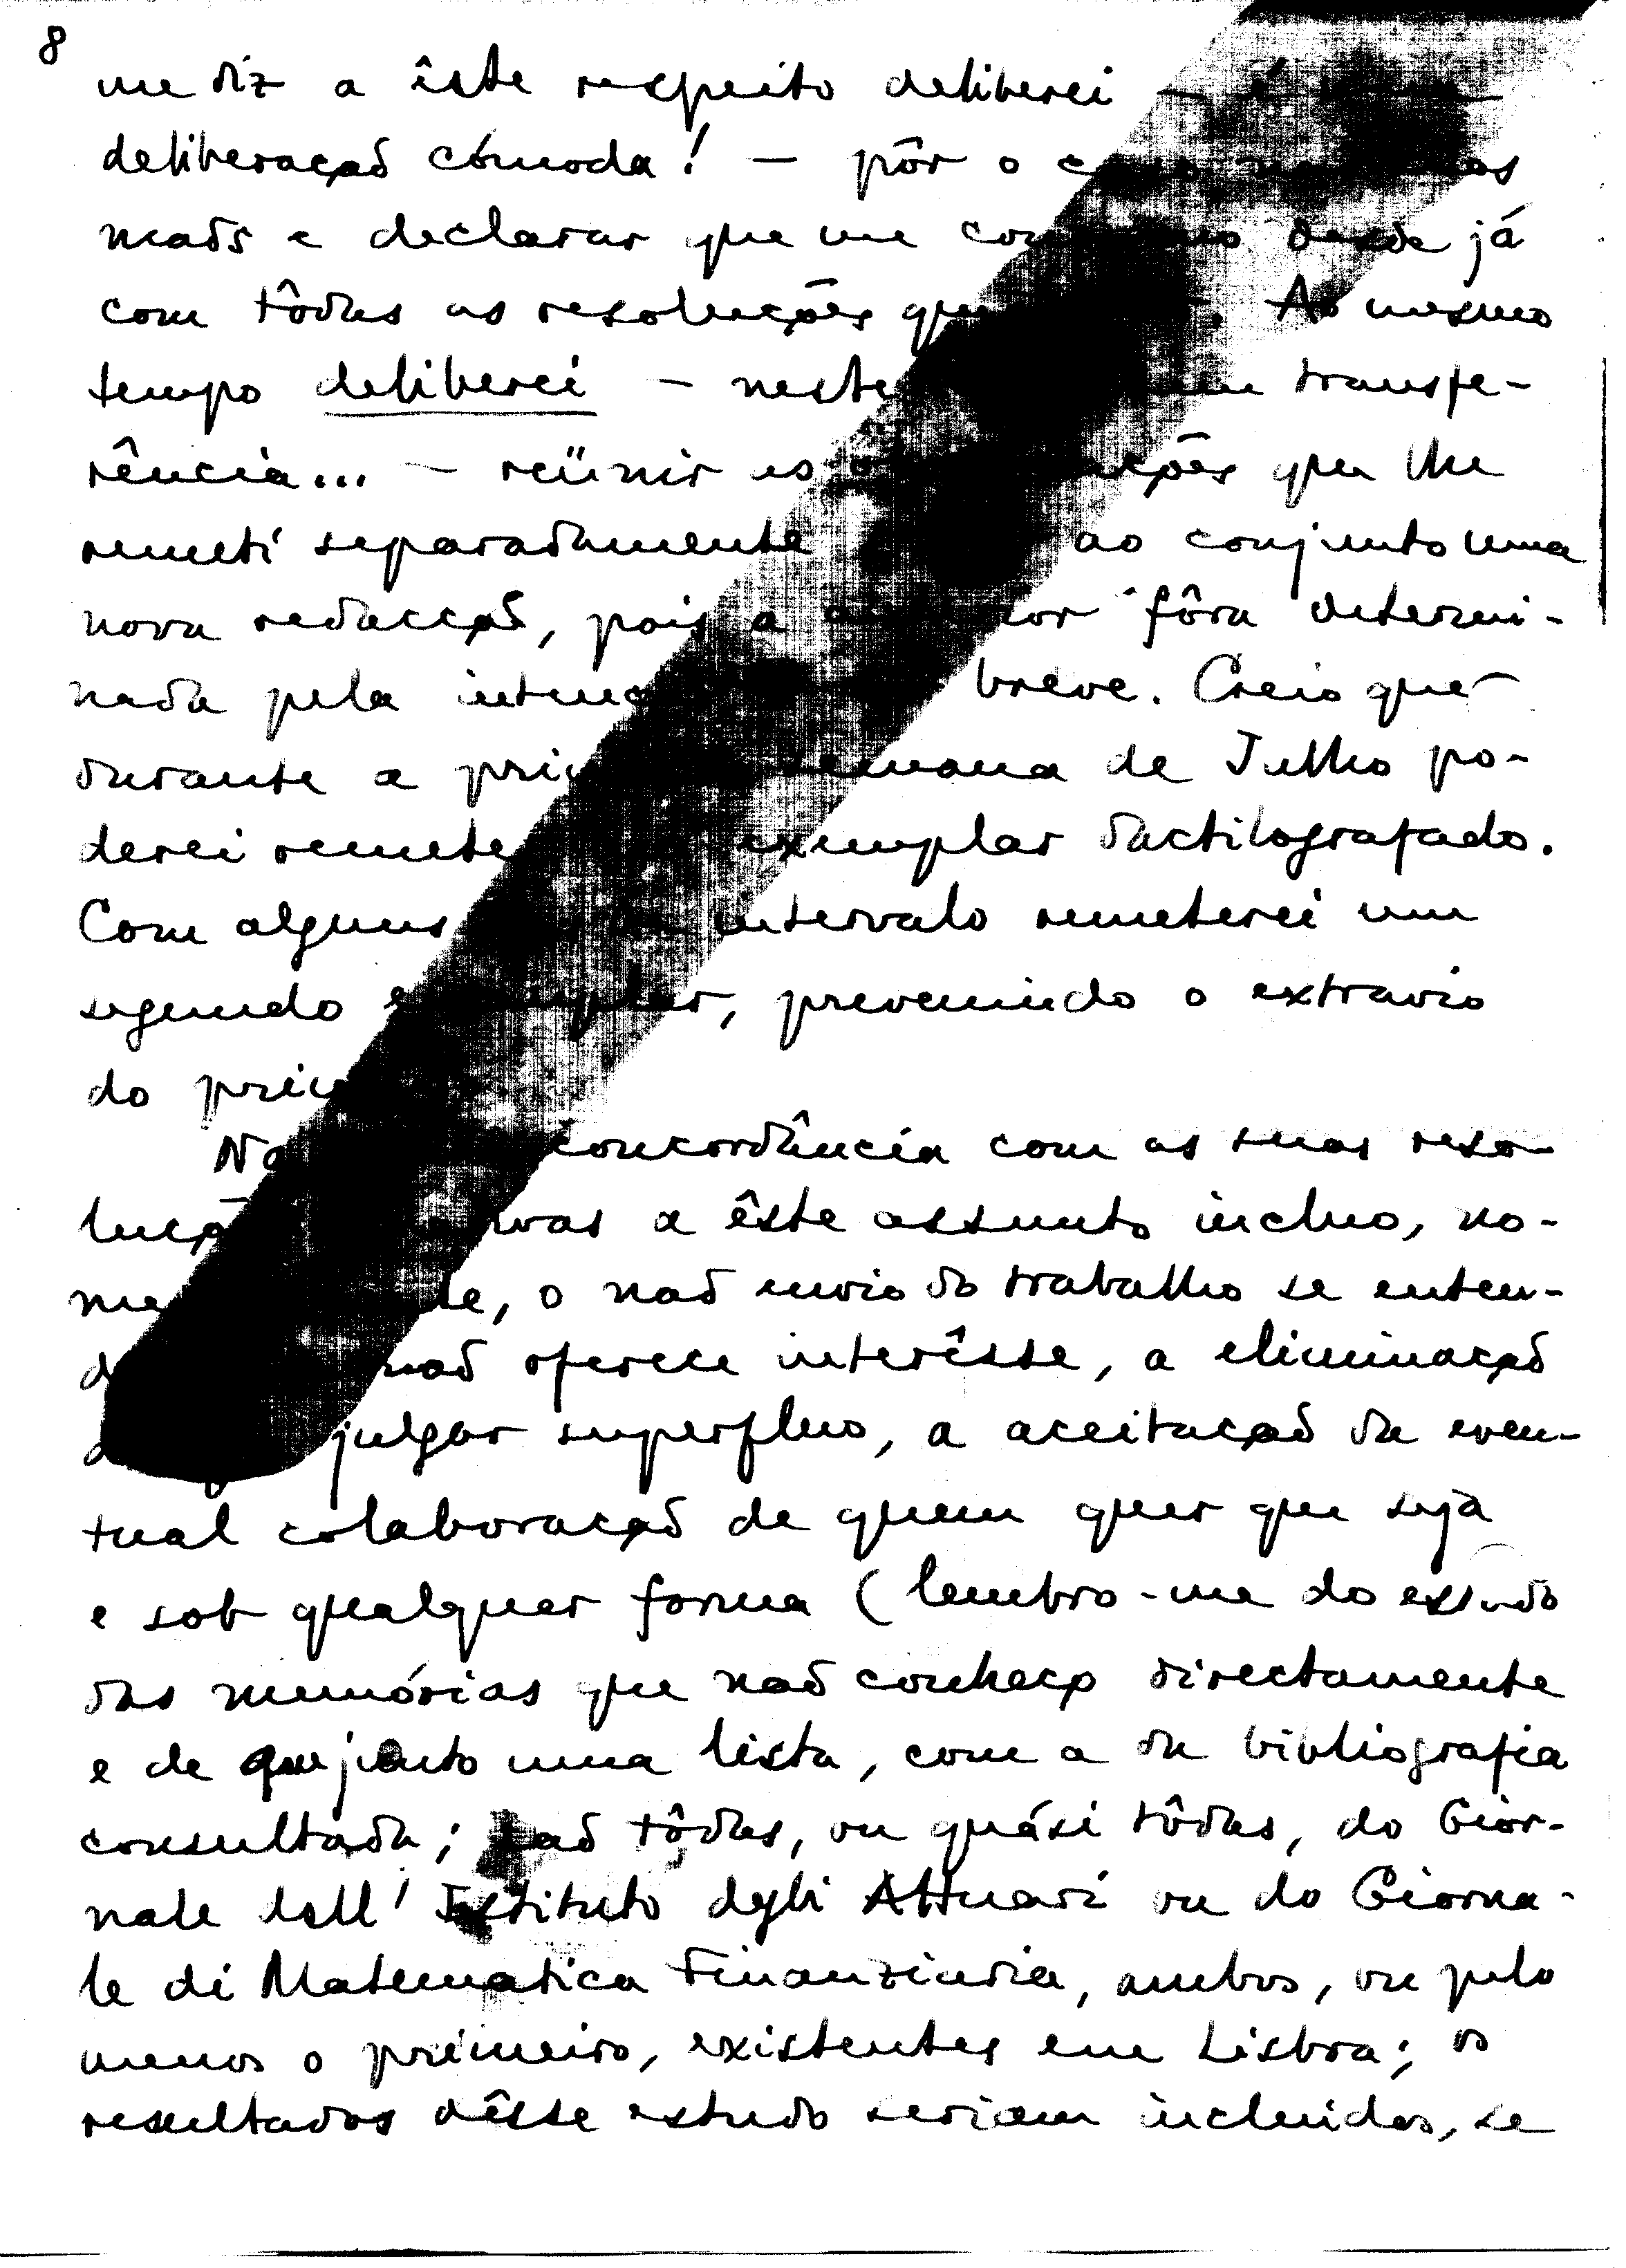 8
me diz a êste respeito deliberei — é
deliberação cómoda! — pôr o
mãos e declarar que me desde já
com tôdas as resoluções Ao mesmo
tempo deliberei — neste transfe-
rência... — reünir as que lhe
remeti separadamente ao conjunto uma
nova redacção, pois a fôra determi-
nada pela breve. Creio que
durante a semana de Julho po-
derei exemplar dactilografado.
Com alguns intervalo remeterei um
segundo exemplar, prevenindo o extravio
do
concordância com as suas reso-
a êste assunto incluo, no-
o não envio do trabalho se enten-
não oferece interêsse, a eliminação
julgar superfluo, a aceitação da even-
tual colaboração de quem quer que seja
e sob qualquer forma (lembro-me do estudo
das memórias que não conheço directamente
e de que junto uma lista, com a da bibliografia
consultada; são tôdas, ou quási tôdas, do Gior-
nale dell' Istituto degli Attuari ou do Giorna-
le di Matematica Finanziaria, ambos, ou pelo
menos o primeiro, existentes em Lisboa; os
resultados dêsse estudo seriam incluidos, se